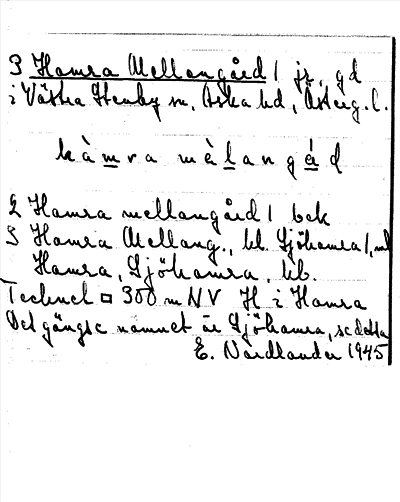 3 Hamra Mellangård / jr, gd
i Västra Stenby sn, Aska hd, Österg. l.
hàmra mèlangád
2 Hamra mellangård / bek
3 Hamra Mellang., kb. Sjöhamra /, ml
Hamra, Sjöhamra, kb.
Tecknet □ 300 m NV H i Hamra
Det gängse namnet är Sjöhamra, se detta
E. Nordlander 1945